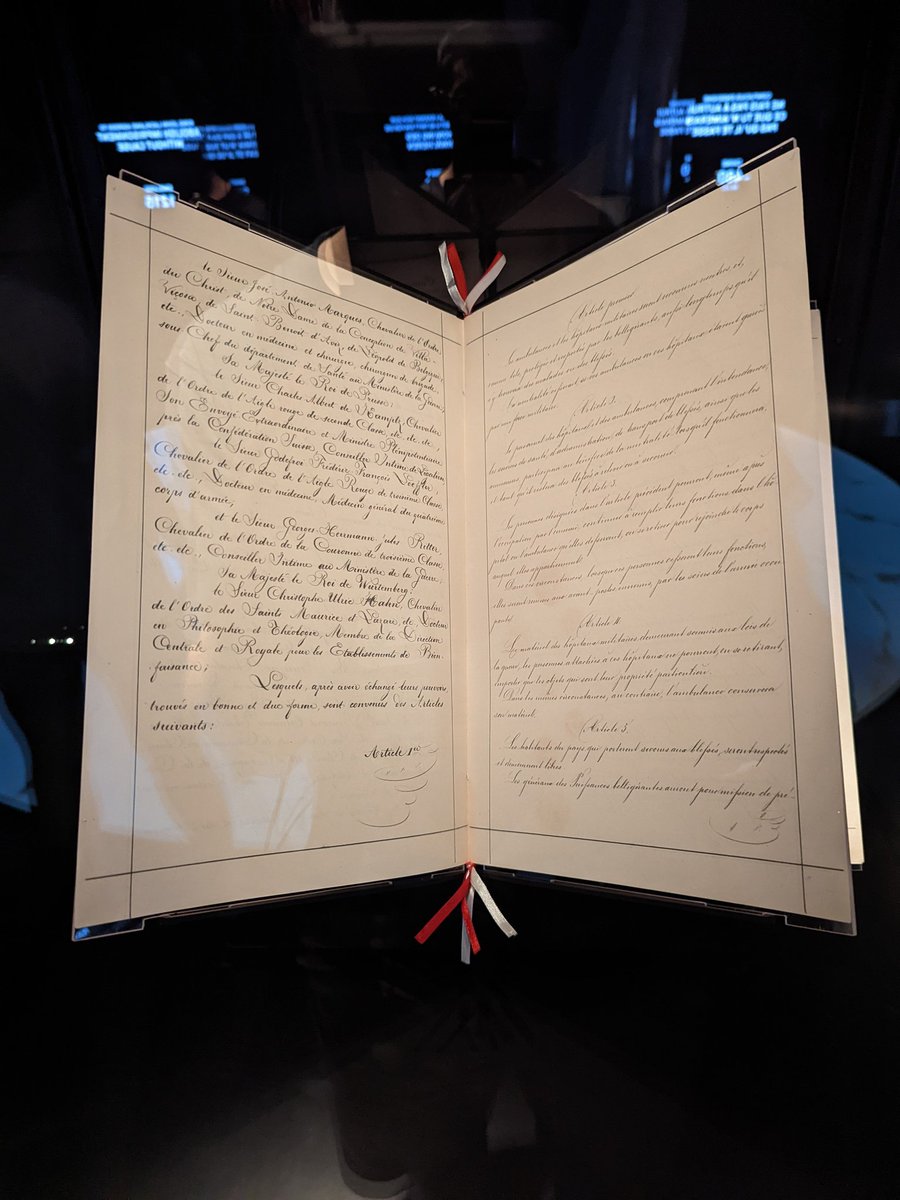 le Sieur José Antonio Marques, Chevalier de l'Ordre
du Christ, de Notre Dame de la Conception de Villa
Viçosa, de Saint Benoit d'Aviz, de Léopold de Belgique,
etc., Docteur en médecine et chirurgie, chirurgien de brigade,
sous Chef du département de Santé au Ministère de la Guerre,
Sa Majesté le Roi de Prusse:
le Sieur Charles Albert de Kamptz, Chevalier
de l'Ordre de l'Aigle rouge de seconde Classe, etc. etc. etc.
Son Envoyé Extraordinaire et Ministre Plénipotentiaire
près la Confédération Suisse, Conseiller Intime de Légation,
le Sieur Godefroi Frédéric François Loeffler,
Chevalier de l'Ordre de l'Aigle Rouge de troisième Classe,
etc. etc., Docteur en médecine, Médecin général du quatrième
corps d'armée;
et le Sieur Georges Hermann Jules Ritter,
Chevalier de l'Ordre de la Couronne de troisième Classe,
etc. etc., Conseiller Intime au Ministère de la Guerre;
Sa Majesté le Roi de Wurtemberg:
le Sieur Christophe Ulric Hahn, Chevalier
de l'Ordre des Saints Maurice et Lazare, etc., Docteur
en Philosophie et Théologie, Membre de la Direction
Centrale et Royale pour les Etablissements de Bien-
faisance;
Lesquels, après avoir échangé leurs pouvoirs
trouvés en bonne et due forme, sont convenus des Articles
suivants:
Article 1er
Article premier
Les ambulances et les hôpitaux militaires seront reconnus neutres, et,
comme tels, protégés et respectés par les belligérants, aussi longtemps qu'il
s'y trouvera des malades ou des blessés.
La neutralité cesserait si ces ambulances ou ces hôpitaux étaient gardés
par une force militaire.
Article 2.
Le personnel des hôpitaux et des ambulances, comprenant l'intendance,
les services de santé, d'administration, de transport de blessés, ainsi que les
aumôniers, participera au bénéfice de la neutralité lorsqu'il fonctionnera,
et tant qu'il restera des blessés à relever ou à secourir.
Article 3.
Les personnes désignées dans l'article précédent pourront, même après
l'occupation par l'ennemi, continuer à remplir leurs fonctions dans l'hô-
pital ou l'ambulance qu'elles desservent, ou se retirer pour rejoindre le corps
auquel elles appartiennent.
Dans ces circonstances, lorsque ces personnes cesseront leurs fonctions,
elles seront remises aux avant-postes ennemis, par les soins de l'armée occu-
pante.
Article 4.
Le matériel des hôpitaux militaires, demeurant soumis aux lois de
la guerre, les personnes attachées à ces hôpitaux ne pourront, en se retirant,
emporter que les objets qui sont leur propriété particulière.
Dans les mêmes circonstances, au contraire, l'ambulance conservera
son matériel.
Article 5.
Les habitants du pays qui porteront secours aux blessés, seront respectés
et demeureront libres.
Les généraux des Puissances belligérantes auront pour mission de pré-